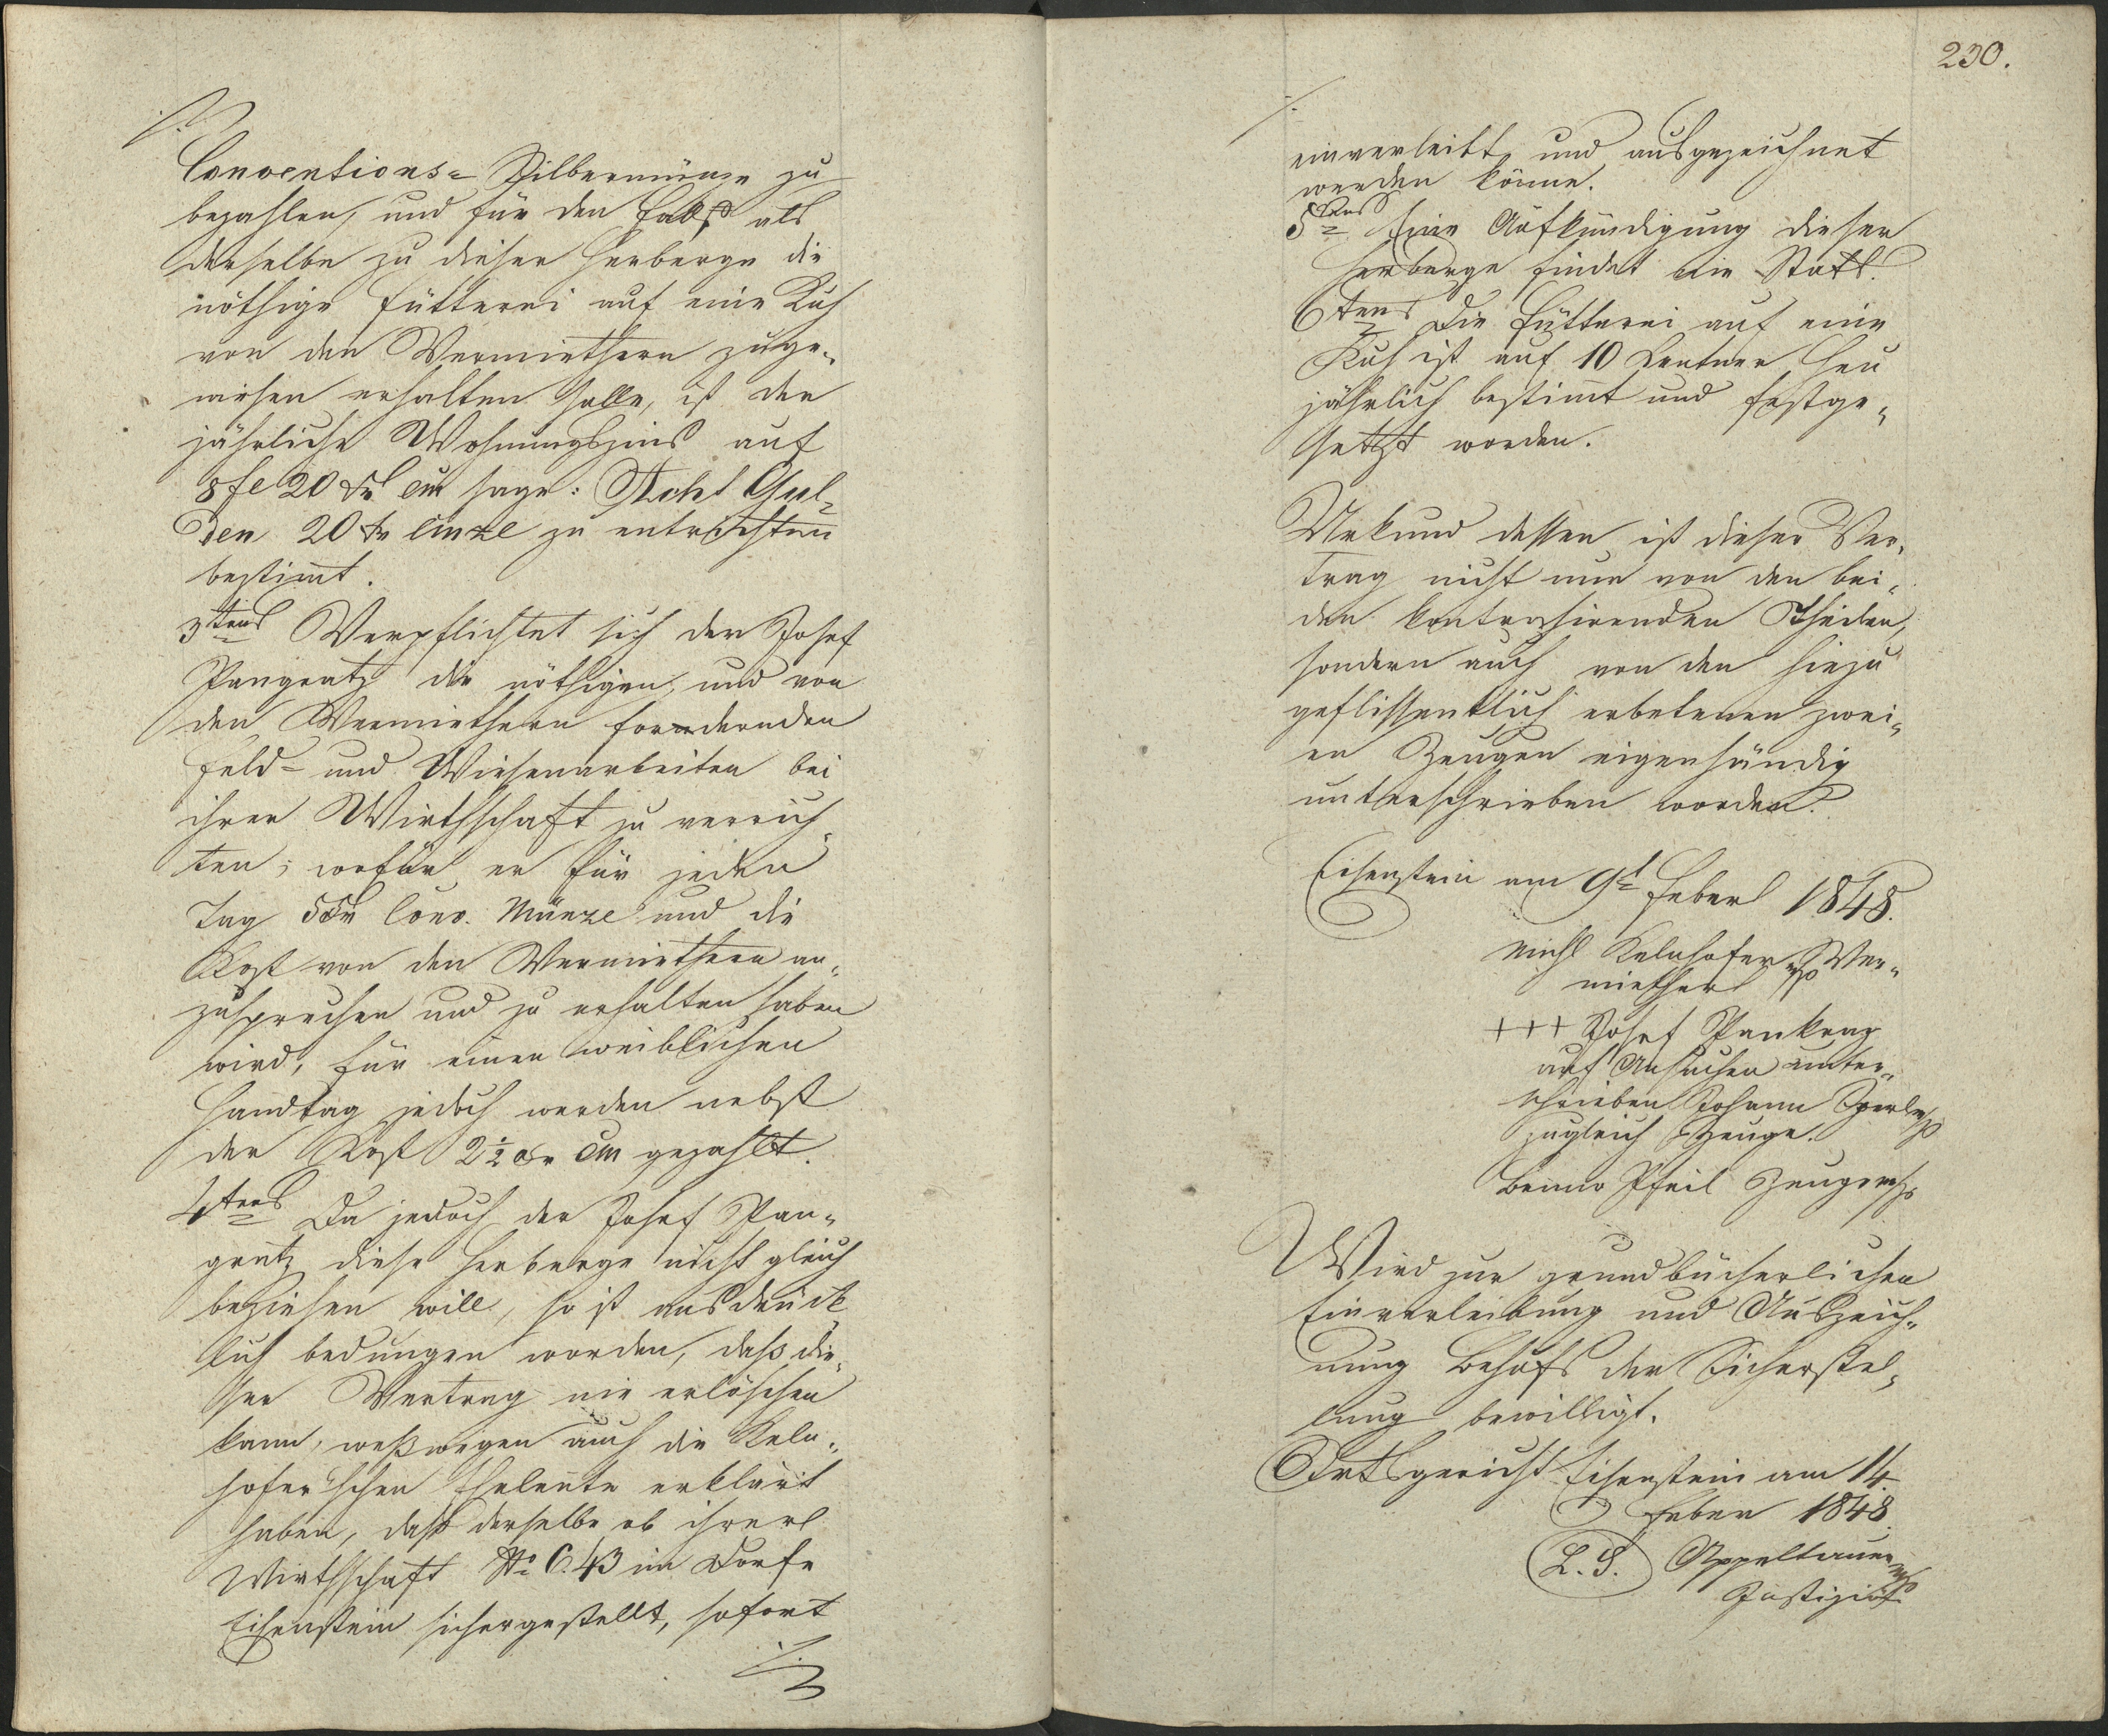 Conventions- Silbermünze zu
bezahlen, und für den Fall, als
derselbe zu dieser Herberge die
nöthige Fütterei auf eine Kuh
von den Vermiethern zuge-
wiesen erhalten solle, ist der
jährliche Wohnungszins auf
8 fl 20 kr CM sage: Acht Gul-
den 20 kr CMze zu entrichten
bestimt.
3tens Verpflichtet sich der Josef
Pangratz die nöthigen, und von
den Vermiethern fordernden
Feld- und Wiesenarbeiten bei
ihrer Wirthschaft zu verrich-
ten; wofür er für jeden
Tag 5 kr Conv. Münze und die
Kost von den Vermiethern an-
zusprechen und zu erhalten haben
wird, für einen weiblichen
Handtag jedoch werden nebst
der Kost 2½ kr CM gezahlt.
4tens Da jedoch der Josef Pan-
gratz diese Herberge nicht gleich
beziehen will, so ist ausdrück
lich bedungen worden, daß die-
ser Vertrag nie erlöschen
kann, weßwegen auch die Keln-
hofer'schen Eheleute erklärt
haben, daß derselbe ob ihrer
Wirthschaft No C. 43 im Dorfe
Eisenstein sichergestellt, sofort
./.
230.
./.
einverleibt und ausgezeichnet
werden könne.
5tens Eine Aufkündigung dieser
Herberge findet nie Statt.
6tens Die Fütterei auf eine
Kuh ist auf 10 Centner Heu
jährlich bestimt und festge-
setzt worden.
Urkund dessen ist dieser Ver-
trag nicht nur von den bei-
den kontrahirenden Theilen,
sondern auch von den hiezu
geflissentlich erbetenen zwei-
en Zeugen eigenhändig
unterschrieben worden.
Eisenstein am 9t Feber 1848.
Michl Kelnhofer mp Ver-
miether
+++ Josef Pankraz
auf Ansuchen unter-
schrieben Johann Sperl mp
zugleich Zeuge.
Benno Pfeil Zeuge mp
Wird zur grundbücherlichen
Einverleibung und Auszeich-
nung Behufs der Sicherstel-
lung bewilligt.
Ortsgericht Eisenstein am 14
Feber 1848.
L. S. Appeltauer mp
Justiziär